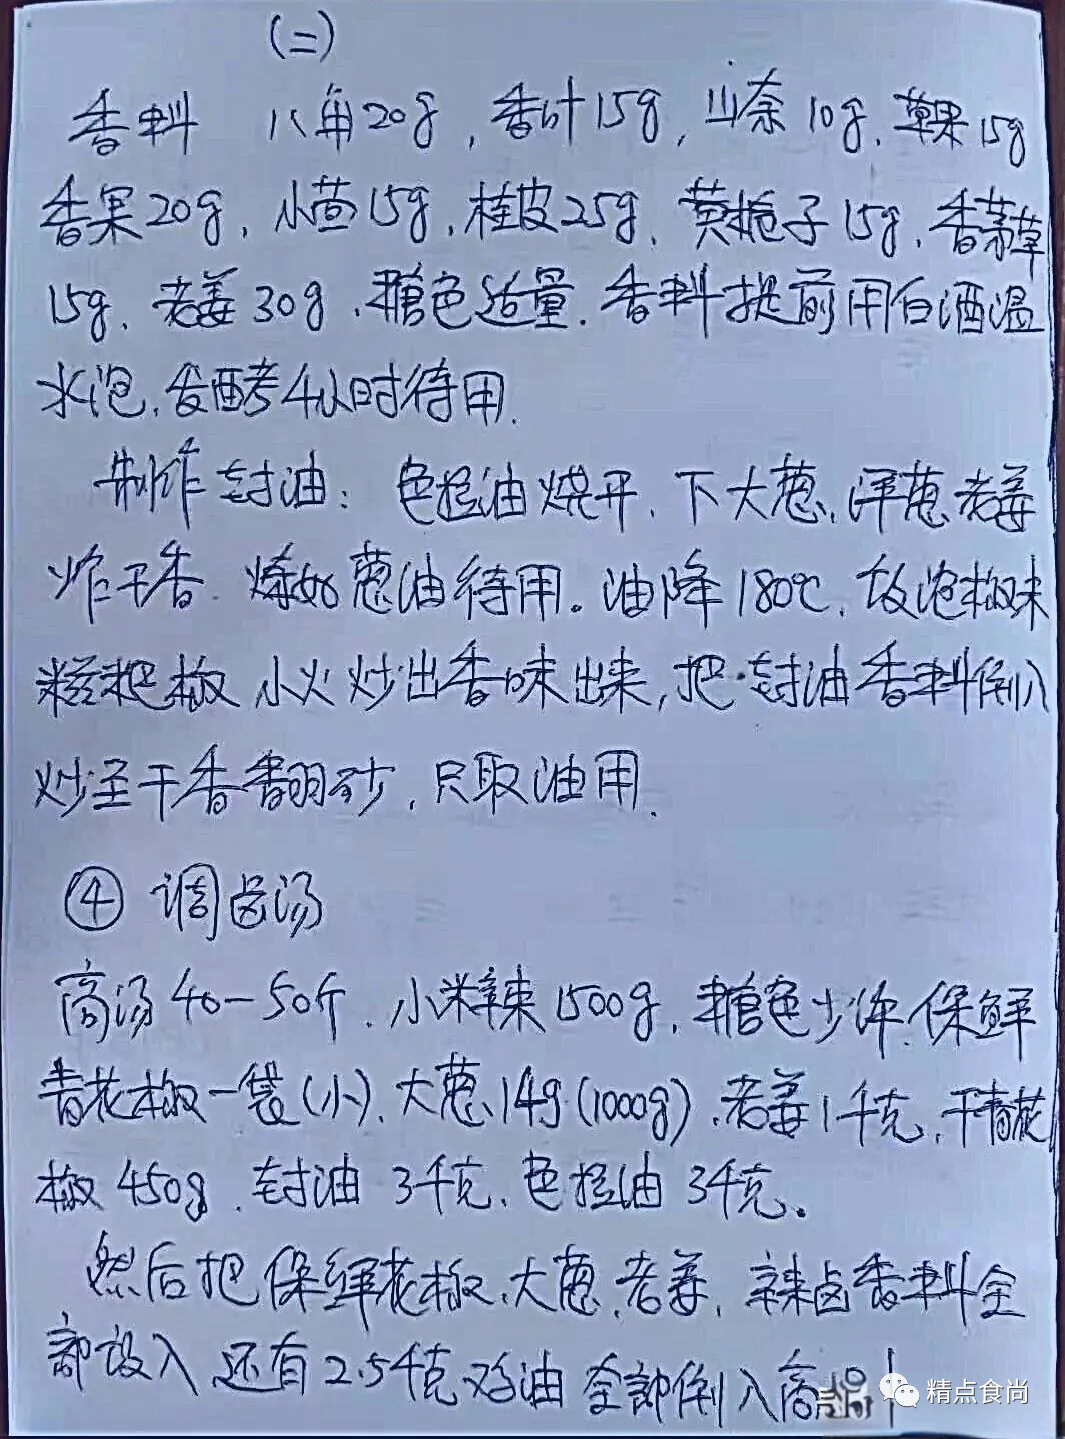 (二)
香料 八角20g,香叶15g,山奈10g,草果15g
香果20g,小茴15g,桂皮25g,黄栀子15g,香茅草
15g、老姜30g、糖色适量.香料提前用白酒温
水泡,发酵4小时待用.
制作封油: 色拉油烧开.下大葱,洋葱老姜
炸干香.炼好葱油待用。油降180℃,放泡椒味
糍粑椒 小火炒出香味出来,把封油香料倒入
炒至干香翻砂,只取油用.
④ 调卤汤
高汤40-50斤.小米辣1500g,糖色少许.保鲜
青花椒一袋(小),大葱 (1000g),老姜1千克,干青花
椒450g、封油3千克、色拉油3千克。
然后把保鲜花椒,大葱,老姜,辣卤香料全
部放入 还有2.5千克鸡油 全部倒入高
精点食尚